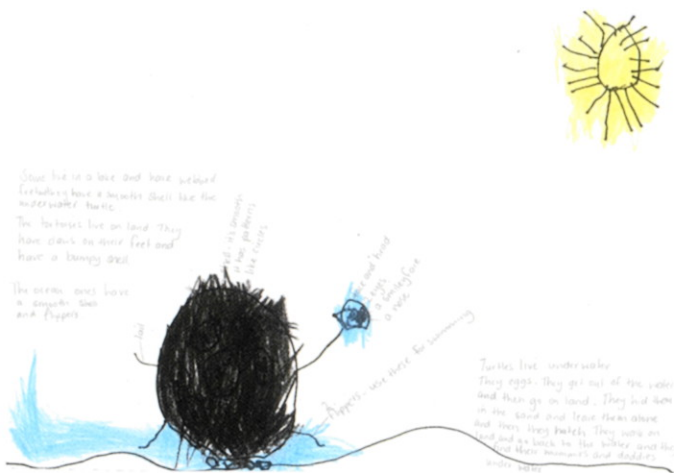 Some live in a lake and have webbed
feet. They have a smooth shell like the
underwater turtle
The tortoises live on land. They
have claws on their feet and
have a bumpy shell
The ocean ones have
a smooth shell
and flippers.
shell - its smooth
it has patterns
like circles
face and head
2 eyes
a smiley face
a nose
flippers - use these for swimming
Turtles live underwater
They eggs. They get out of the water
and then go on land. They hid them
in the sand and leave them alone
and then they hatch. They walk on
land and go back to the water and they
find their mummies and daddies
under water